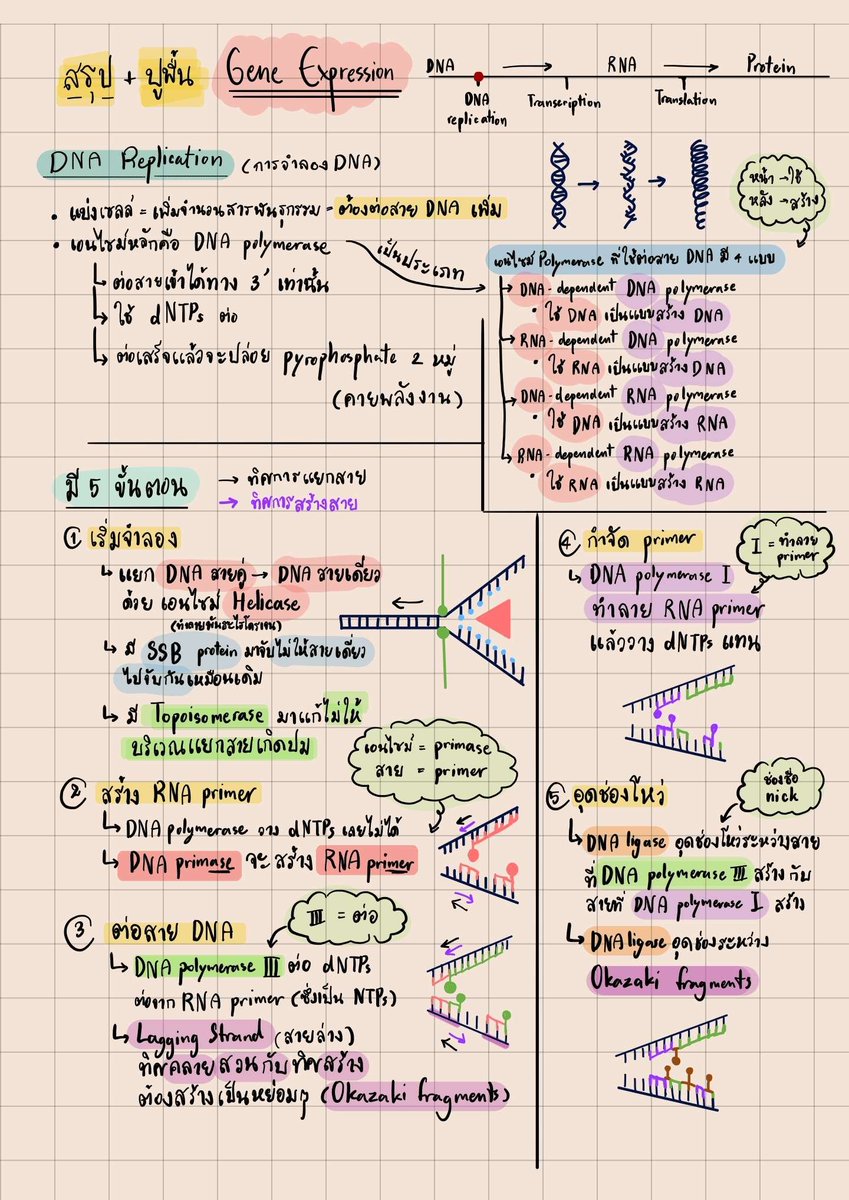 สรุป + ปูพื้น Gene Expression
DNA → RNA → Protein
DNA replication
Transcription
Translation
DNA Replication (การจำลอง DNA)
• แบ่งเซลล์ = เพิ่มจำนวนสารพันธุกรรม - ต้องต่อสาย DNA เพิ่ม
• เอนไซม์หลักคือ DNA polymerase
↳ ต่อสายเข้าได้ทาง 3' เท่านั้น
↳ ใช้ dNTPs ต่อ
↳ ต่อเสร็จแล้วจะปล่อย pyrophosphate 2 หมู่
(คายพลังงาน)
เป็นประเภท
หน้า → ใช้
หลัง → สร้าง
เอนไซม์ Polymerase ที่ใช้ต่อสาย DNA มี 4 แบบ
DNA - dependent DNA polymerase
• ใช้ DNA เป็นแบบสร้าง DNA
RNA - dependent DNA polymerase
• ใช้ RNA เป็นแบบสร้าง DNA
DNA - dependent RNA polymerase
• ใช้ DNA เป็นแบบสร้าง RNA
RNA - dependent RNA polymerase
• ใช้ RNA เป็นแบบสร้าง RNA
มี 5 ขั้นตอน
→ ทิศการแยกสาย
→ ทิศการสร้างสาย
① เริ่มจำลอง
↳ แยก DNA สายคู่ → DNA สายเดี่ยว
ด้วย เอนไซม์ Helicase
(ทำลายพันธะไฮโดรเจน)
↳ มี SSB protein มาจับไม่ให้สายเดี่ยว
ไปจับกันเหมือนเดิม
↳ มี Topoisomerase มาแก้ไม่ให้
บริเวณแยกสายเกิดปม
เอนไซม์ = primase
สาย = primer
② สร้าง RNA primer
↳ DNA polymerase วาง dNTPs เลยไม่ได้
↳ DNA primase จะ สร้าง RNA primer
③ ต่อสาย DNA
III = ต่อ
↳ DNA polymerase III ต่อ dNTPs
ต่อจาก RNA primer (ซึ่งเป็น NTPs)
↳ Lagging Strand (สายล่าง)
ทิศคลาย สวนกับทิศสร้าง
ต้องสร้างเป็นหย่อมๆ (Okazaki fragments)
④ กำจัด primer
I = ทำลาย
primer
↳ DNA polymerase I
ทำลาย RNA primer
แล้ววาง dNTPs แทน
⑤ อุดช่องโหว่
ช่องชื่อ
nick
↳ DNA ligase อุดช่องโหว่ระหว่างสาย
ที่ DNA polymerase III สร้าง กับ
สายที่ DNA polymerase I สร้าง
↳ DNA ligase อุดช่องระหว่าง
Okazaki fragments